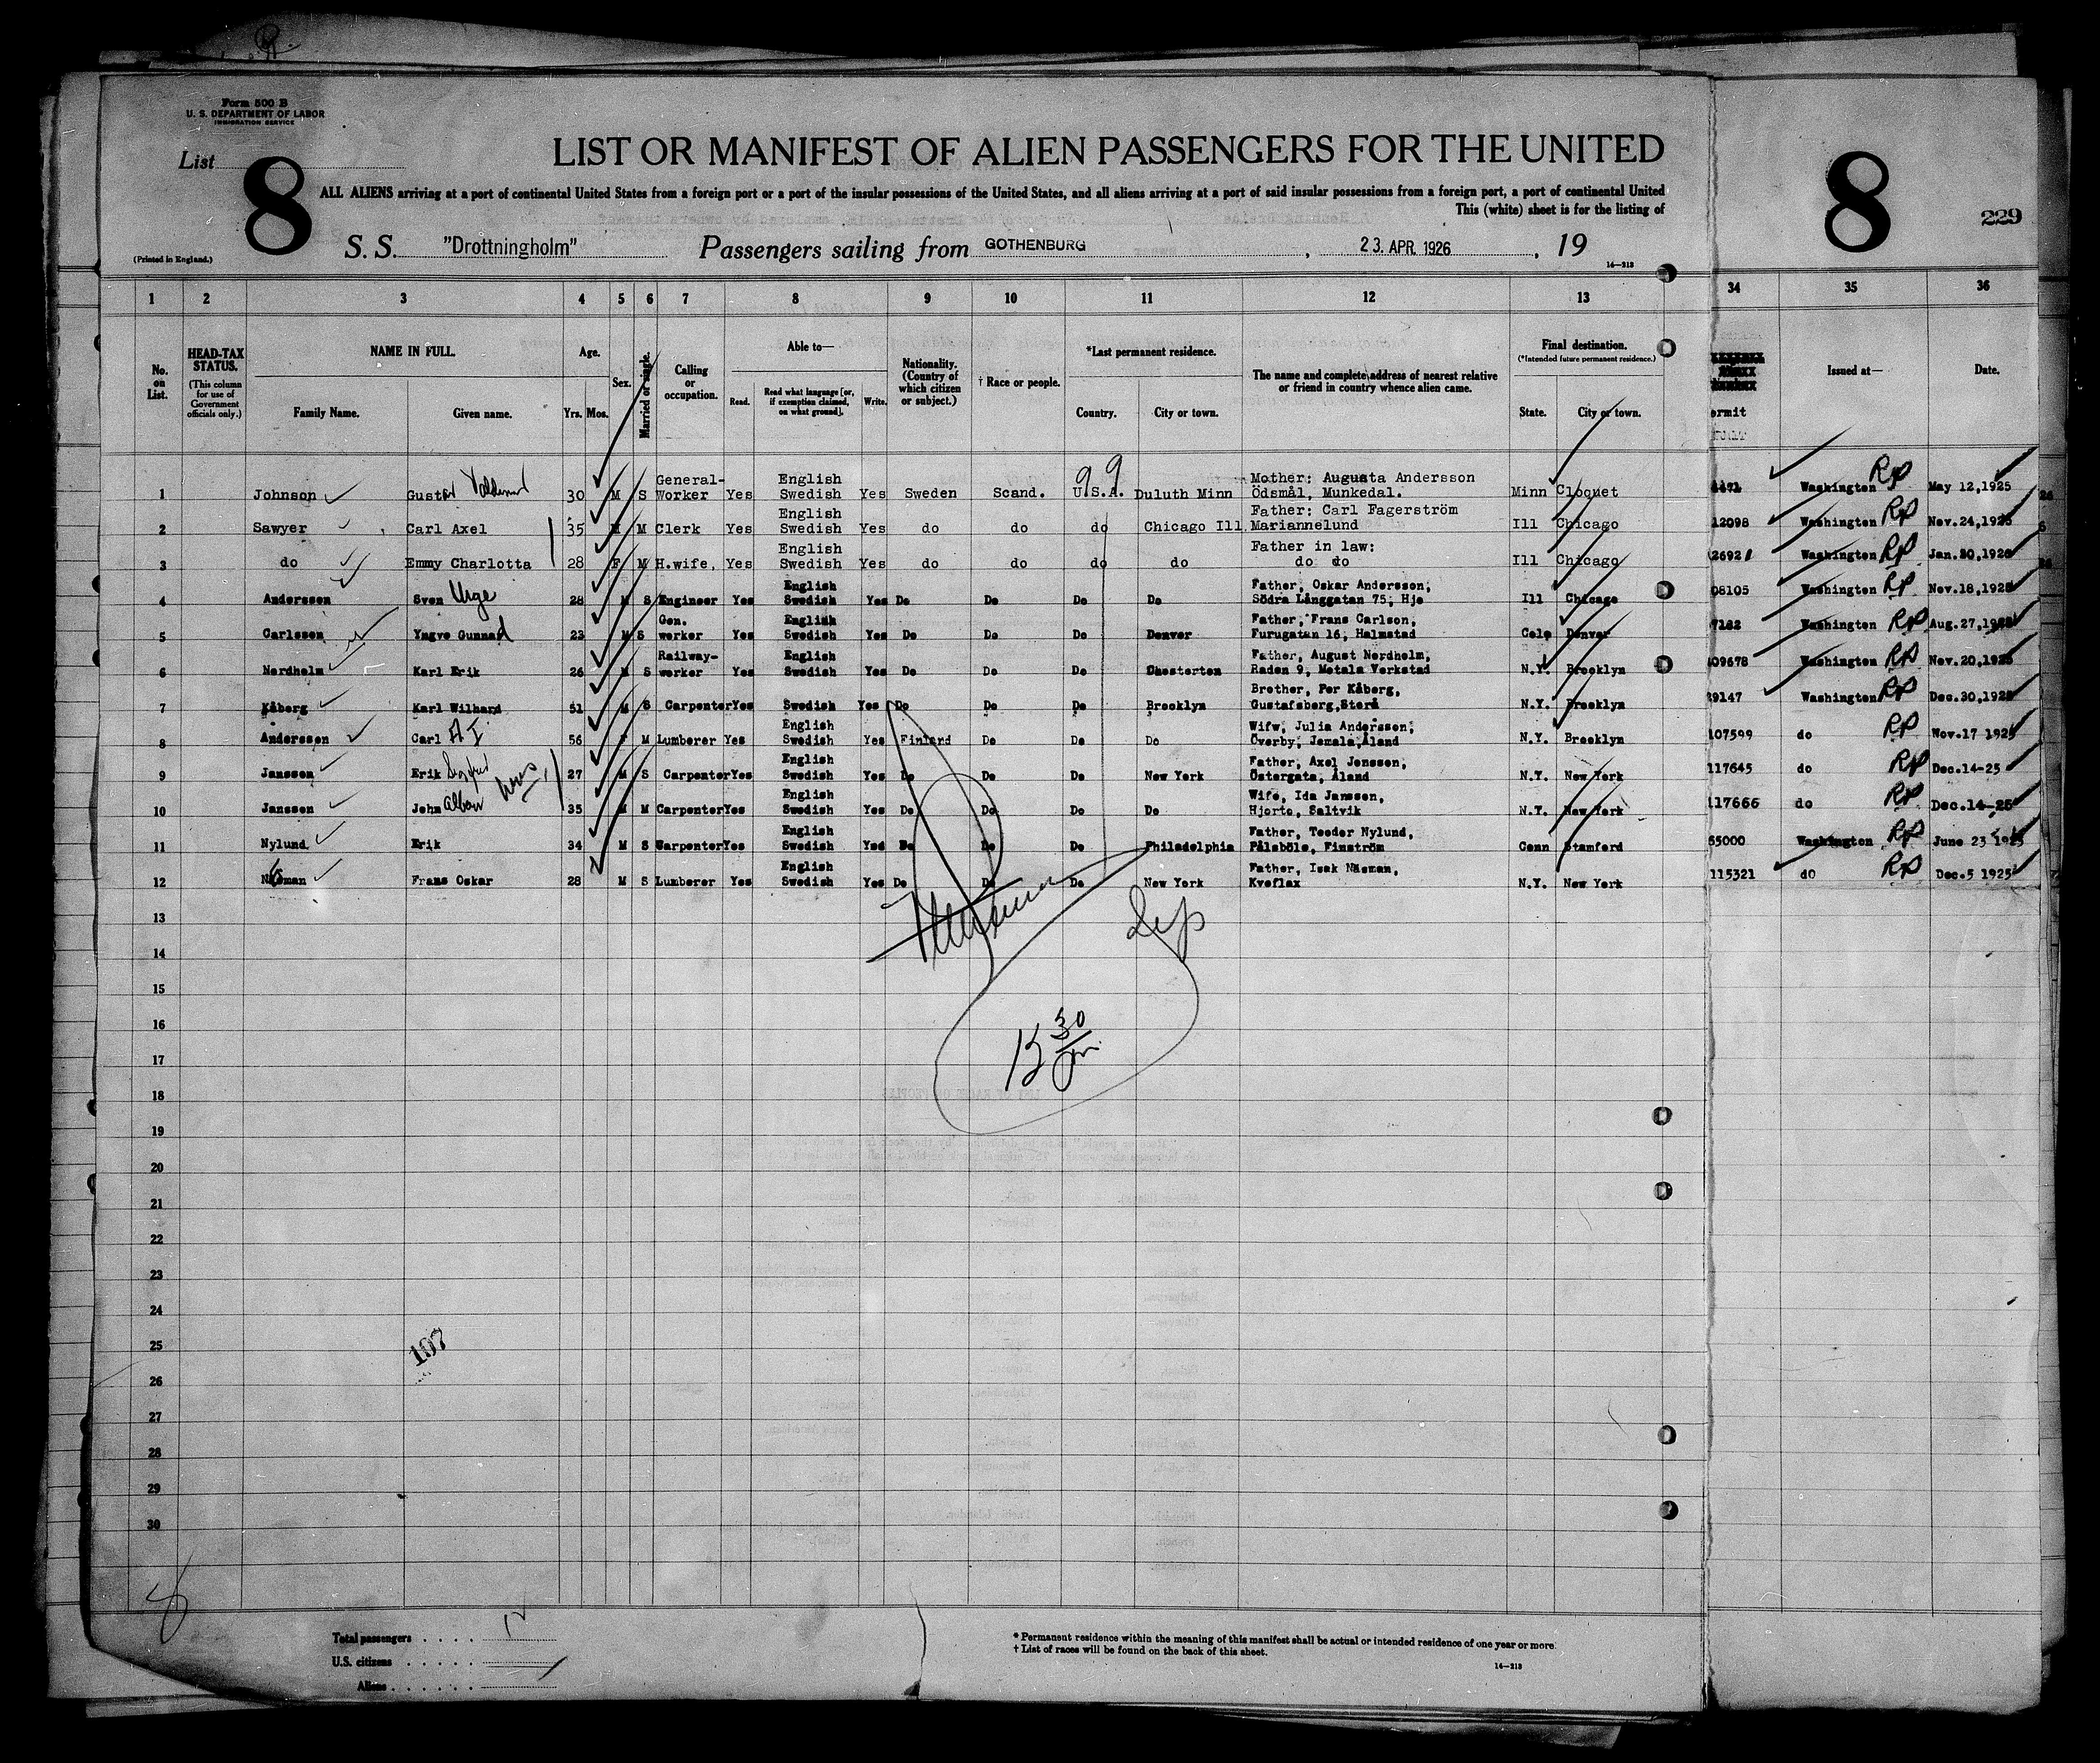 Form 500 B
U. S. DEPARTMENT OF LABOR
IMMIGRATION SERVICE
List 8
LIST OR MANIFEST OF ALIEN PASSENGERS FOR THE UNITED
ALL ALIENS arriving at a port of continental United States from a foreign port or a port of the insular possessions of the United States, and all aliens arriving at a port of said insular possessions from a foreign port, a port of continental United
This (white) sheet is for the listing of
8 229
(Printed in England.)
S. S. "Drottningholm" Passengers sailing from GOTHENBURG, 23. APR. 1926, 19
14—213
1 2 3 4 5 6 7 8 9 10 11 12 13 34 35 36
No. on List.
HEAD-TAX STATUS.
(This column for use of Government officials only.)
NAME IN FULL.
Family Name. Given name.
Age.
Yrs. Mos.
Sex.
Married or single.
Calling or occupation.
Able to—
Read. Read what language [or, if exemption claimed, on what ground]. Write.
Nationality. (Country of which citizen or subject.)
† Race or people.
*Last permanent residence.
Country. City or town.
The name and complete address of nearest relative or friend in country whence alien came.
Final destination.
(*Intended future permanent residence.)
State. City or town.
ermit
Issued at—
Date.
1 Johnson Gustaf Valdemar 30 M S General-Worker Yes English Swedish Yes Sweden Scand. U.S.A. Duluth Minn Mother: Augusta Andersson Ödsmål, Munkedal. Minn Cloquet Washington RP May 12,1925
2 Sawyer Carl Axel 35 M M Clerk Yes English Swedish Yes do do do Chicago Ill. Father: Carl Fagerström Mariannelund Ill Chicago 12098 Washington RP Nov.24,1925
3 do Emmy Charlotta 28 F M H.wife, Yes English Swedish Yes do do do do Father in law: do do Ill Chicago 26921 Washington RP Jan.20,1926
4 Andersson Sven 28 M S Engineer Yes English Swedish Yes Do Do Do Do Father, Oskar Andersson, Södra Långgatan 75, Hjo Ill Chicago 08105 Washington RP Nov.18,1925
5 Carlsson Yngve Gunnar 23 M S Gen. worker Yes English Swedish Yes Do Do Do Denver Father, Frans Carlson, Furugatan 16, Halmstad Colo Denver Washington RP Aug.27,1925
6 Nordholm Karl Erik 26 M S Railway-worker Yes English Swedish Yes Do Do Do Chesterton Father, August Nordholm, Raden 9, Motala Verkstad N.Y. Brooklyn 09678 Washington RP Nov.20,1925
7 Kåberg Karl Wilhard 51 M S Carpenter Yes Swedish Yes Do Do Do Brooklyn Brother, Per Kåberg, Gustafsberg,Sterå N.Y. Brooklyn 29147 Washington RP Dec.30,1925
8 Andersson Carl A I 56 M Lumberer Yes English Swedish Yes Finland Do Do Do Wifw, Julia Andersson, Överby, Jomala,Åland N.Y. Brooklyn 107599 do RP Nov.17 1925
9 Jansson Erik Sigfrid 27 M S Carpenter Yes English Swedish Yes Do Do Do New York Father, Axel Jonssen, Östergata, Åland N.Y. New York 117645 do RP Dec.14-25
10 Janssen John Albin 35 M M Carpenter Yes English Swedish Yes Do Do Do Do Wife, Ida Janssen, Hjorto, Saltvik N.Y. New York 117666 do RP Dec.14-25
11 Nylund Erik 34 M S Carpenter Yes English Swedish Yes Do Do Do Philadelphia Father, Teodor Nylund, Pålsböle, Finström Conn Stamford 65000 Washington RP June 23 1925
12 Näsman Frans Oskar 28 M S Lumberer Yes English Swedish Yes Do Do Do New York Father, Isak Näsman, Kveflax N.Y. New York 115321 do RP Dec.5 1925
13
14
15
16
17
18
19
20
21
22
23
24
25
26
27
28
29
30
107
Total passengers 12
U.S. citizens
Aliens
* Permanent residence within the meaning of this manifest shall be actual or intended residence of one year or more.
† List of races will be found on the back of this sheet.
14—213